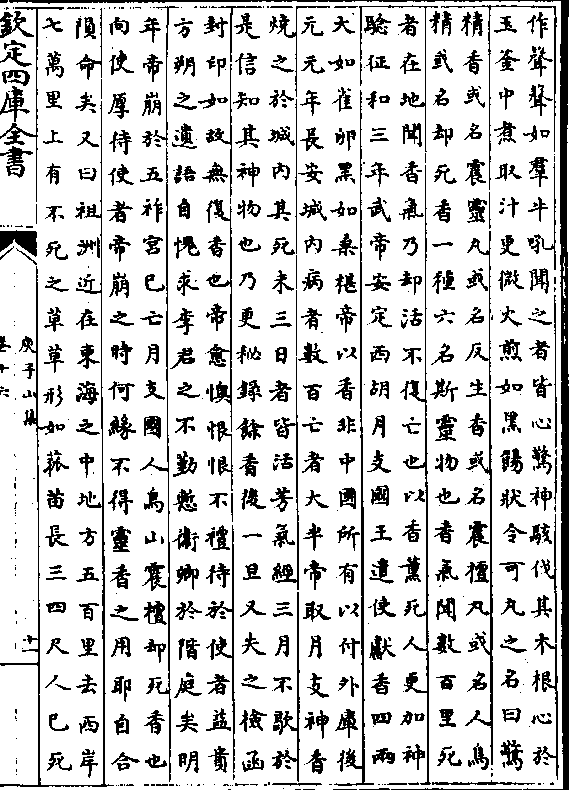 作聲聲如羣牛吼聞之者皆心驚神駭伐其木根心於
玉釜中煮取汁更微火煎如黑餳狀令可丸之名曰驚
精香或名震靈丸或名反生香或名震檀丸或名人鳥
精或名却死香一種六名斯靈物也香氣聞數百里死
者在地聞香氣乃却活不復亡也以香薰死人更加神
驗征和三年武帝安定西胡月支國王遣使獻香四兩
大如雀卵黑如桑椹帝以香非中國所有以付外庫後
元元年長安城內病者數百亡者大半帝取月支神香
燒之於城內其死未三日者皆活芳氣經三月不歇於
是信知其神物也乃更秘錄餘香後一旦又失之檢函
封印如故無復香也帝愈懊恨恨不禮待於使者益貴
方朔之遺語自愧求李君之不勤慙衞卿於階庭矣明
年帝崩於五祚宮已亡月支國人鳥山震檀却死香也
向使厚待使者帝崩之時何緣不得靈香之用耶自合
隕命矣又曰祖洲近在東海之中地方五百里去西岸
七萬里上有不死之草草形如菰苗長三四尺人已死
欽定四庫全書
庾子山集
卷十六
十一